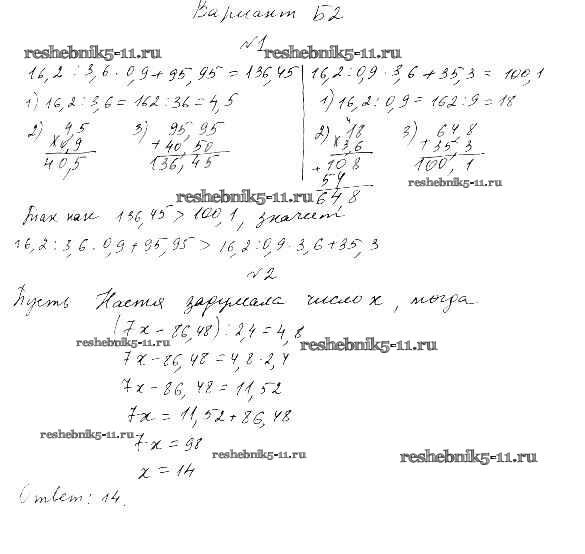 Вариант Б2
№1
reshebnik5-11.ru reshebnik5-11.ru
16,2 : 3,6 · 0,9 + 95,95 = 136,45
1) 16,2 : 3,6 = 162 : 36 = 4,5
2) 4,5
× 0,9
40,5
3) 95,95
+ 40,50
136,45
16,2 : 0,9 · 3,6 + 35,3 = 100,1
1) 16,2 : 0,9 = 162 : 9 = 18
2) 18
× 3,6
+ 108
54
64,8
3) 64,8
+ 35,3
100,1
reshebnik5-11.ru
reshebnik5-11.ru
Так как 136,45 > 100,1, значит
16,2 : 3,6 · 0,9 + 95,95 > 16,2 : 0,9 · 3,6 + 35,3
№2
Пусть Настя задумала число x, тогда
(7x - 86,48) : 2,4 = 4,8
reshebnik5-11.ru reshebnik5-11.ru
7x - 86,48 = 4,8 · 2,4
7x - 86,48 = 11,52
7x = 11,52 + 86,48
reshebnik5-11.ru
7·x = 98
reshebnik5-11.ru reshebnik5-11.ru
x = 14
Ответ: 14.